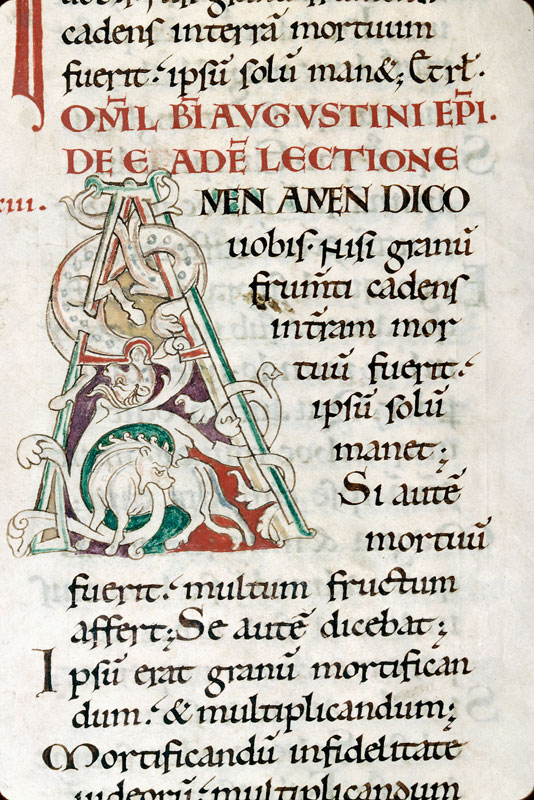 cadens interrā mortuum
fuerit. ipsū solū man&; Et rł.
OM̄L B̄I AVGVSTINI EP̄I.
DE EADĒ LECTIONE
AMEN AMEN DICO
uobis. nisi granū
frum̄ti cadens
int̄ram mor
tuū fuerit.
ipsū solū
manet;
Si autē
mortuū
fuerit. multum fructum
affert; Se autē dicebat;
Ipsū erat granū mortifican
dum. & multiplicandum;
Mortificandū infidelitate
iudeorū. multiplicandum